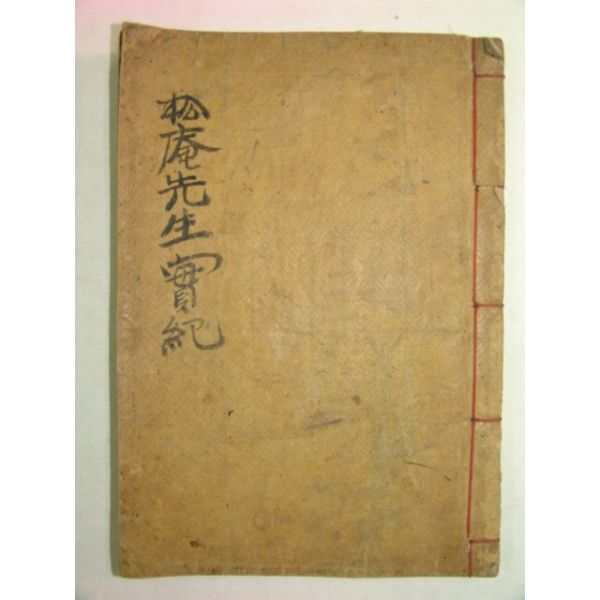 松庵先生實紀